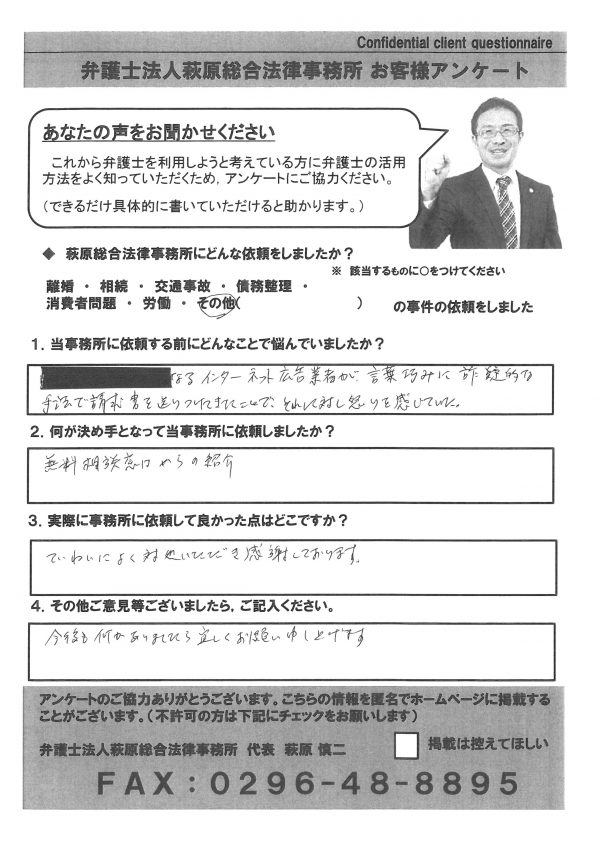 Confidential client questionnaire
弁護士法人萩原総合法律事務所 お客様アンケート
あなたの声をお聞かせください
これから弁護士を利用しようと考えている方に弁護士の活用
方法をよく知っていただくため，アンケートにご協力ください。
(できるだけ具体的に書いていただけると助かります。)
◆ 萩原総合法律事務所にどんな依頼をしましたか？
※ 該当するものに○をつけてください
離婚 ・ 相続 ・ 交通事故 ・ 債務整理 ・
消費者問題 ・ 労働 ・ その他( ) の事件の依頼をしました
1．当事務所に依頼する前にどんなことで悩んでいましたか？
なるインターネット広告業者が、言葉巧みに詐疑的な
手法で請求書を送りつけてきたことで、それに対し怒りを感じていた。
2．何が決め手となって当事務所に依頼しましたか？
無料相談窓口からの紹介
3．実際に事務所に依頼して良かった点はどこですか？
ていねいによく対処いただき感謝しております。
4．その他ご意見等ございましたら，ご記入ください。
今後も何かありましたら宜しくお願い申し上げます
アンケートのご協力ありがとうございます。こちらの情報を匿名でホームページに掲載する
ことがございます。(不許可の方は下記にチェックをお願いします)
弁護士法人萩原総合法律事務所 代表 萩原 慎二
掲載は控えてほしい
FAX：0296-48-8895